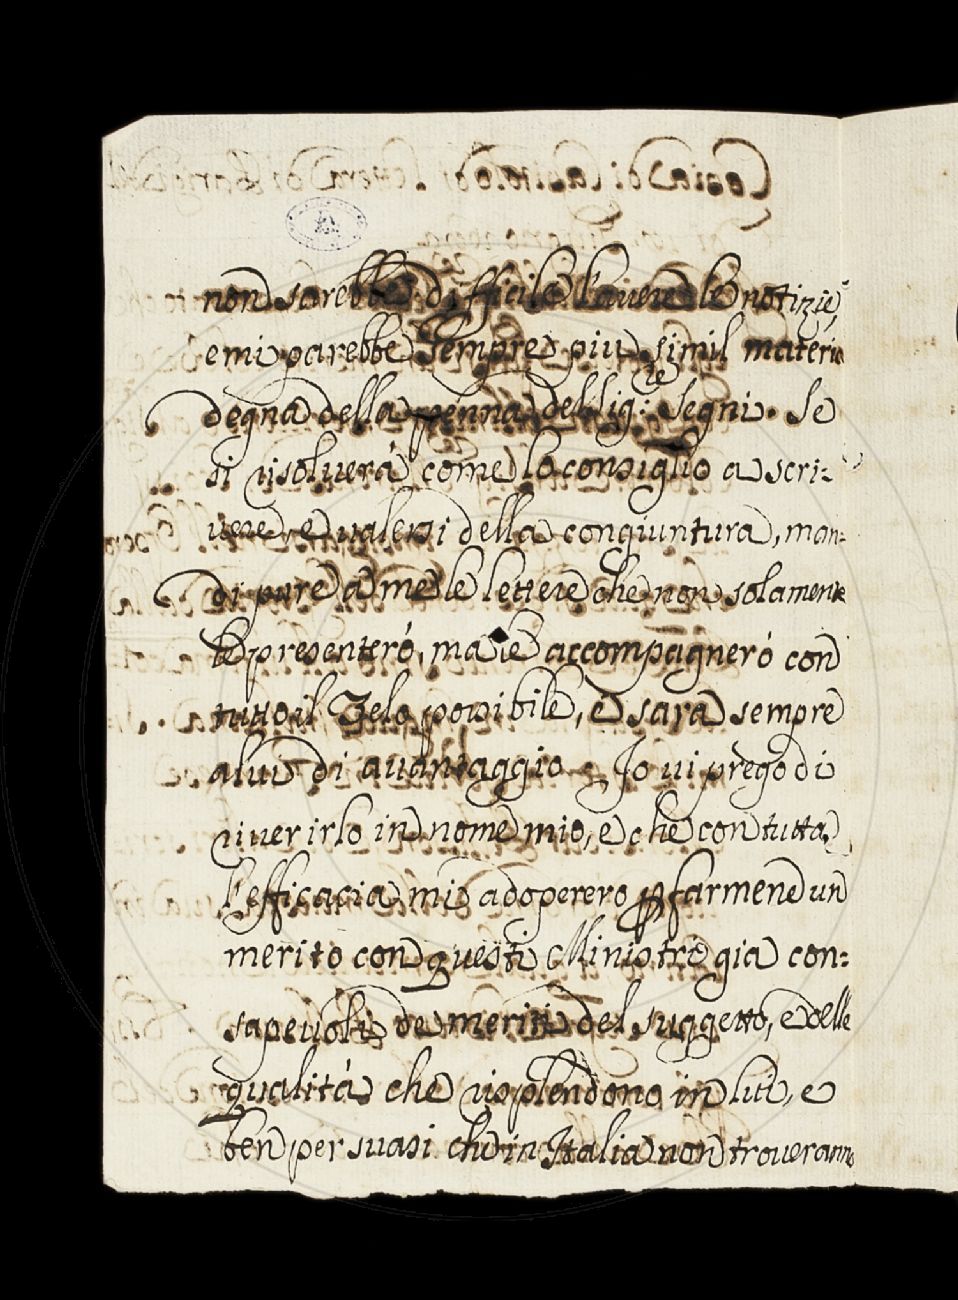 non sarebbe difficile l'auere le notizie,
e mi parebbe sempre piu simil materia
degna della penna del sig.re Segni. Se
si risoluerà come lo consiglio a scri:
uere, e ualersi della congiuntura, man:
di pure à me le lettere che non solamente
le presenteró, ma le accompagneró con
tutto il Zelo possibile, e sarà sempre
a lui di auantaggio. Io ui prego di
riuerirlo in nome mio, e che con tutta
l'efficacia mi adoperero p farmene un
merito con questi Ministri già con:
sapeuoli de meriti del suggetto, e delle
qualità che risplendono in lui, e
ben persuasi che in Italia non troueranno